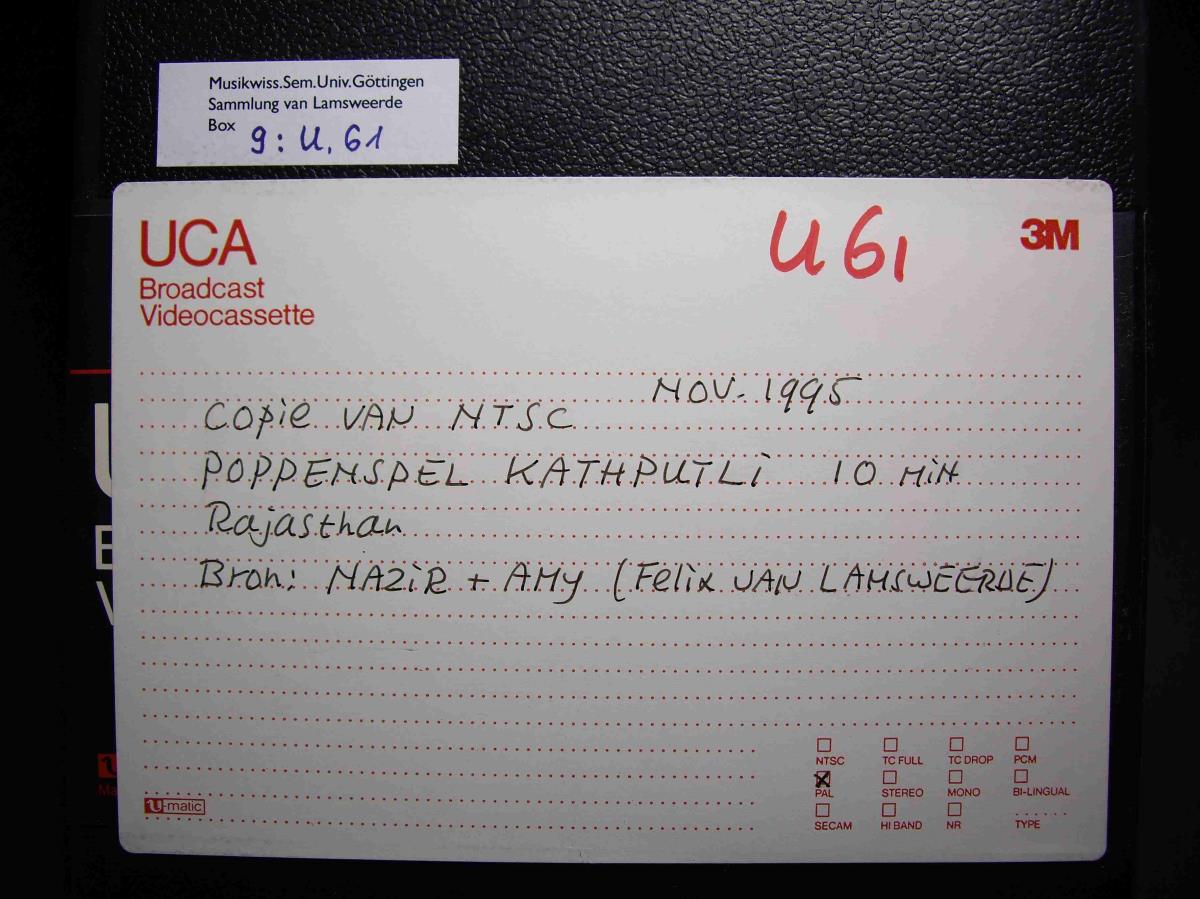 Musikwiss.Sem.Univ.Göttingen
Sammlung van Lamsweerde
Box 9: U. 61
UCA
Broadcast
Videocassette
U 61
3M
NOV. 1995
Copie VAN NTSC
POPPENSPEL KATHPUTLi 10 MiN
Rajasthan
Bron: NAZiR + AMy (Felix VAN LAMSWEERDE)
NTSC TC FULL TC DROP PCM
PAL STEREO MONO BI-LINGUAL
SECAM HI BAND NR TYPE
U-matic